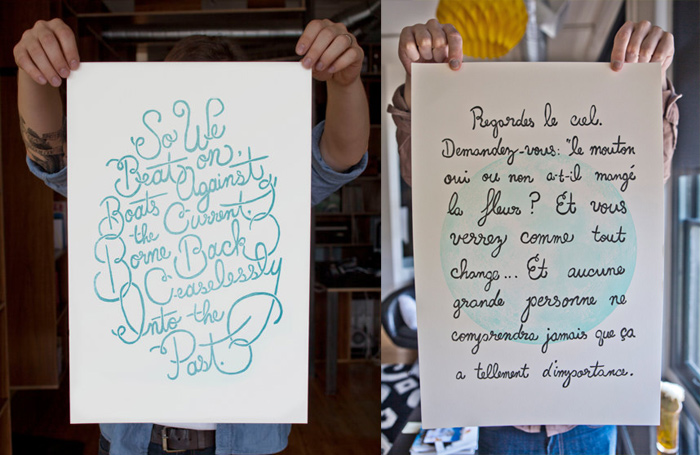 So We
Beat on,
Boats Against
the Current,
Borne Back
Ceaselessly
Into the
Past.
Regardes le ciel.
Demandez-vous: "le mouton
oui ou non a-t-il mangé
la fleur? Et vous
verrez comme tout
change... Et aucune
grande personne ne
comprendra jamais que ça
a tellement d'importance.